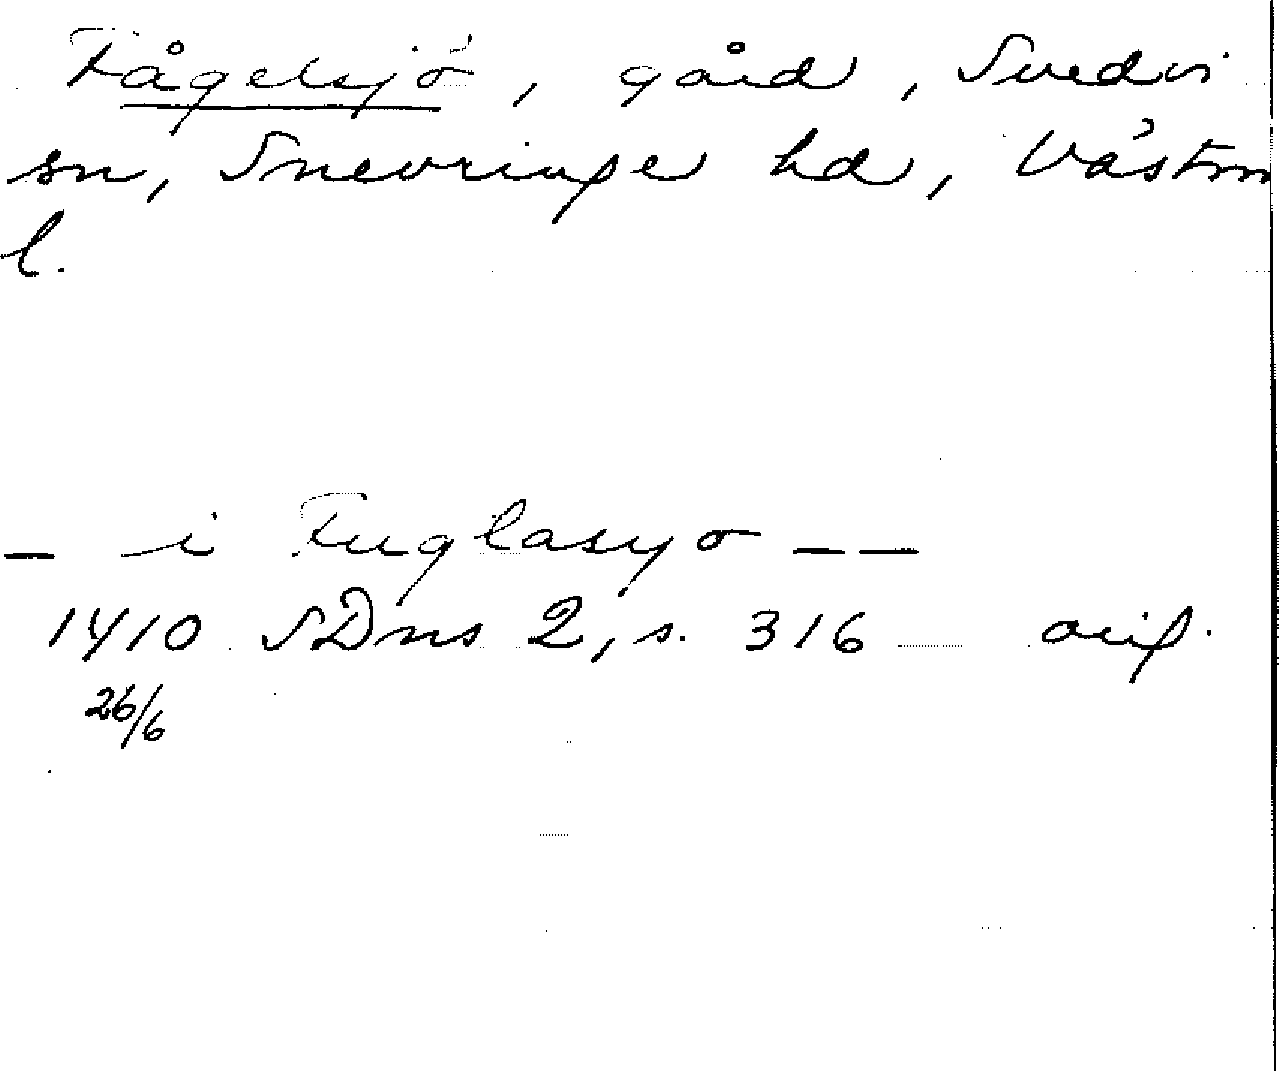 Fågelsjö, gård, Svedvi
sn, Snevringe hd, Västm
l.
– i Fuglasyo – –
1410 SDns 2, s. 316 orig.
26/6